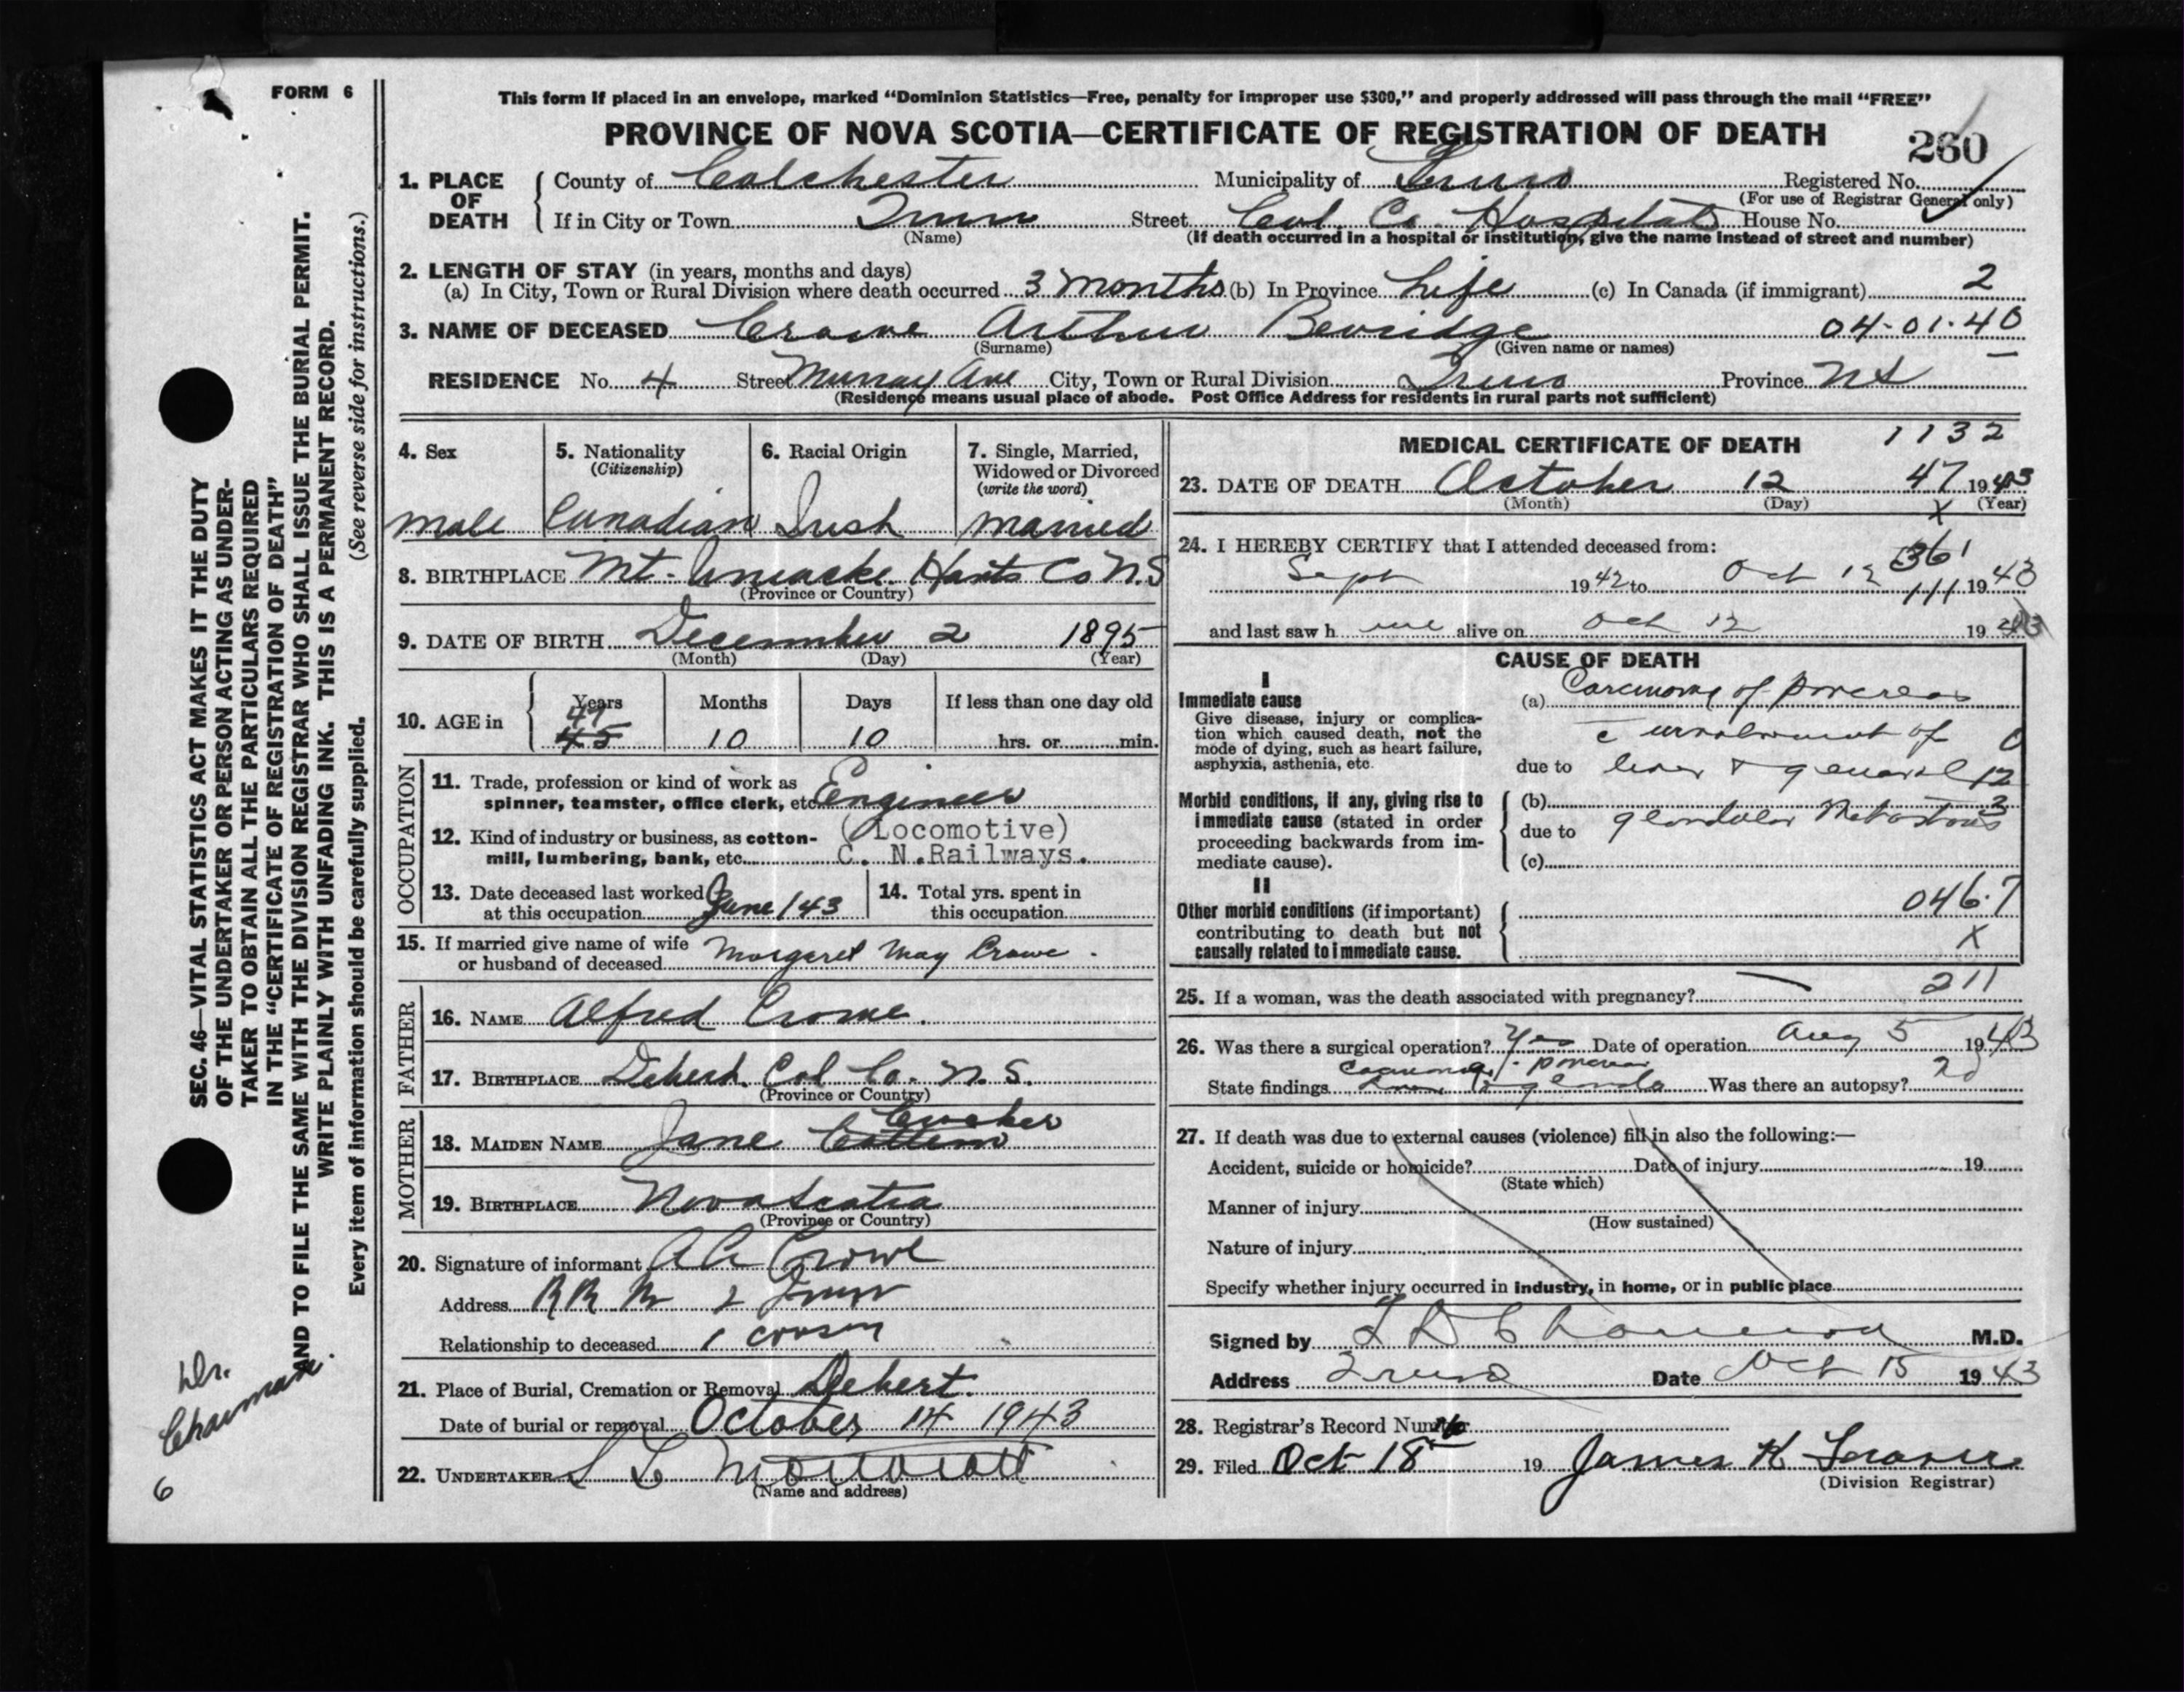 FORM 6
This form if placed in an envelope, marked “Dominion Statistics—Free, penalty for improper use $300,” and properly addressed will pass through the mail “FREE”
PROVINCE OF NOVA SCOTIA—CERTIFICATE OF REGISTRATION OF DEATH
260
1. PLACE OF DEATH County of Colchester Municipality of Truro Registered No.
(For use of Registrar General only)
If in City or Town Truro Street Col. Co. Hospital House No.
(Name) (If death occurred in a hospital or institution, give the name instead of street and number)
2. LENGTH OF STAY (in years, months and days)
(a) In City, Town or Rural Division where death occurred 3 months (b) In Province Life (c) In Canada (if immigrant) 2
3. NAME OF DECEASED Crowe Arthur Beveridge 04-01-40
(Surname) (Given name or names)
RESIDENCE No. 4 Street Murray Ave City, Town or Rural Division Truro Province NS
(Residence means usual place of abode. Post Office Address for residents in rural parts not sufficient)
4. Sex 5. Nationality 6. Racial Origin 7. Single, Married,
(Citizenship) Widowed or Divorced
(write the word)
male Canadian Irish married
8. BIRTHPLACE Mt. Uniacke Hants Co N.S
(Province or Country)
9. DATE OF BIRTH December 2 1895
(Month) (Day) (Year)
10. AGE in Years Months Days If less than one day old
47
45 10 10 hrs. or min.
OCCUPATION
11. Trade, profession or kind of work as
spinner, teamster, office clerk, etc. Engineer
12. Kind of industry or business, as cotton- (Locomotive)
mill, lumbering, bank, etc. C. N.Railways.
13. Date deceased last worked
at this occupation June/43
14. Total yrs. spent in
this occupation
15. If married give name of wife
or husband of deceased Margaret May Crowe.
FATHER
16. NAME Alfred Crowe.
17. BIRTHPLACE Debert. Col Co. N.S.
(Province or Country)
MOTHER
18. MAIDEN NAME Jane
19. BIRTHPLACE Nova Scotia
(Province or Country)
20. Signature of informant A A Crowe
Address RR No 2 Truro
Relationship to deceased 1 cousin
21. Place of Burial, Cremation or Removal Debert.
Date of burial or removal October 14 1943
22. UNDERTAKER
(Name and address)
MEDICAL CERTIFICATE OF DEATH 1132
23. DATE OF DEATH October 12 47 1943
(Month) (Day) X (Year)
24. I HEREBY CERTIFY that I attended deceased from: 361
Sept 1942 to Oct 12 111 1943
and last saw h im alive on Oct 12 1943
CAUSE OF DEATH
I
Immediate cause
Give disease, injury or complica-
tion which caused death, not the
mode of dying, such as heart failure,
asphyxia, asthenia, etc.
(a) Carcinoma of pancreas
c involvement of 0
due to liver & general 12
Morbid conditions, if any, giving rise to
immediate cause (stated in order
proceeding backwards from im-
mediate cause).
(b) 3
due to glandular Metastasis
(c)
II
Other morbid conditions (if important)
contributing to death but not
causally related to immediate cause.
046.7
X
25. If a woman, was the death associated with pregnancy? — 211
26. Was there a surgical operation? Yes Date of operation Aug 5 1943
State findings Carcinoma of pancreas glands Was there an autopsy?
27. If death was due to external causes (violence) fill in also the following:—
Accident, suicide or homicide? Date of injury 19
(State which)
Manner of injury
(How sustained)
Nature of injury
Specify whether injury occurred in industry, in home, or in public place
Signed by M.D.
Address Truro Date Oct 15 1943
28. Registrar's Record Number
29. Filed Oct 18 19 James K Fraser
(Division Registrar)
SEC. 46—VITAL STATISTICS ACT MAKES IT THE DUTY
OF THE UNDERTAKER OR PERSON ACTING AS UNDER-
TAKER TO OBTAIN ALL THE PARTICULARS REQUIRED
IN THE “CERTIFICATE OF REGISTRATION OF DEATH”
AND TO FILE THE SAME WITH THE DIVISION REGISTRAR WHO SHALL ISSUE THE BURIAL PERMIT.
WRITE PLAINLY WITH UNFADING INK. THIS IS A PERMANENT RECORD.
Every item of information should be carefully supplied. (See reverse side for instructions.)
Dr.
6